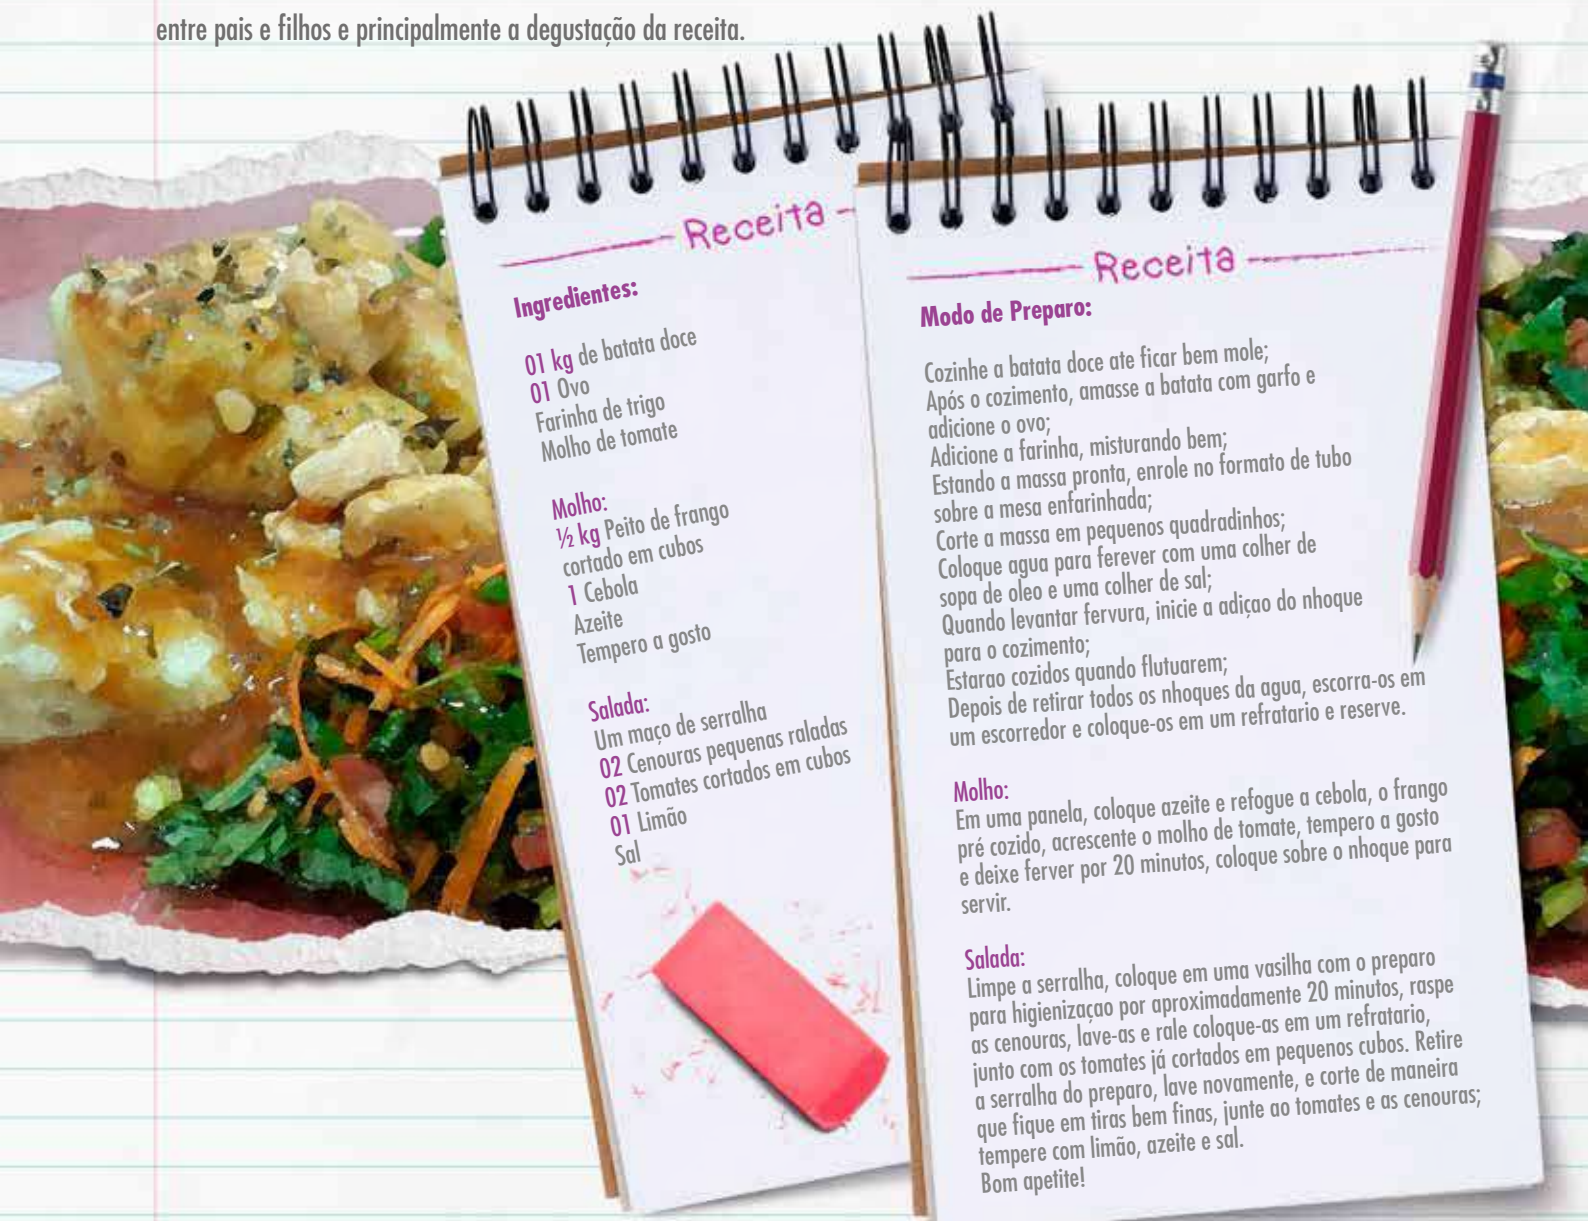 entre pais e filhos e principalmente a degustação da receita.
Receita
Ingredientes:
01 kg de batata doce
01 Ovo
Farinha de trigo
Molho de tomate
Molho:
½ kg Peito de frango
cortado em cubos
1 Cebola
Azeite
Tempero a gosto
Salada:
Um maço de serralha
02 Cenouras pequenas raladas
02 Tomates cortados em cubos
01 Limão
Sal
Receita
Modo de Preparo:
Cozinhe a batata doce ate ficar bem mole;
Após o cozimento, amasse a batata com garfo e
adicione o ovo;
Adicione a farinha, misturando bem;
Estando a massa pronta, enrole no formato de tubo
sobre a mesa enfarinhada;
Corte a massa em pequenos quadradinhos;
Coloque agua para ferever com uma colher de
sopa de oleo e uma colher de sal;
Quando levantar fervura, inicie a adiçao do nhoque
para o cozimento;
Estarao cozidos quando flutuarem;
Depois de retirar todos os nhoques da agua, escorra-os em
um escorredor e coloque-os em um refratario e reserve.
Molho:
Em uma panela, coloque azeite e refogue a cebola, o frango
pré cozido, acrescente o molho de tomate, tempero a gosto
e deixe ferver por 20 minutos, coloque sobre o nhoque para
servir.
Salada:
Limpe a serralha, coloque em uma vasilha com o preparo
para higienizaçao por aproximadamente 20 minutos, raspe
as cenouras, lave-as e rale coloque-as em um refratario,
junto com os tomates já cortados em pequenos cubos. Retire
a serralha do preparo, lave novamente, e corte de maneira
que fique em tiras bem finas, junte ao tomates e as cenouras;
tempere com limão, azeite e sal.
Bom apetite!